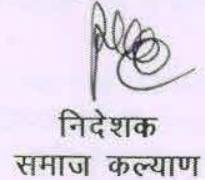 निदेशक
समाज कल्याण